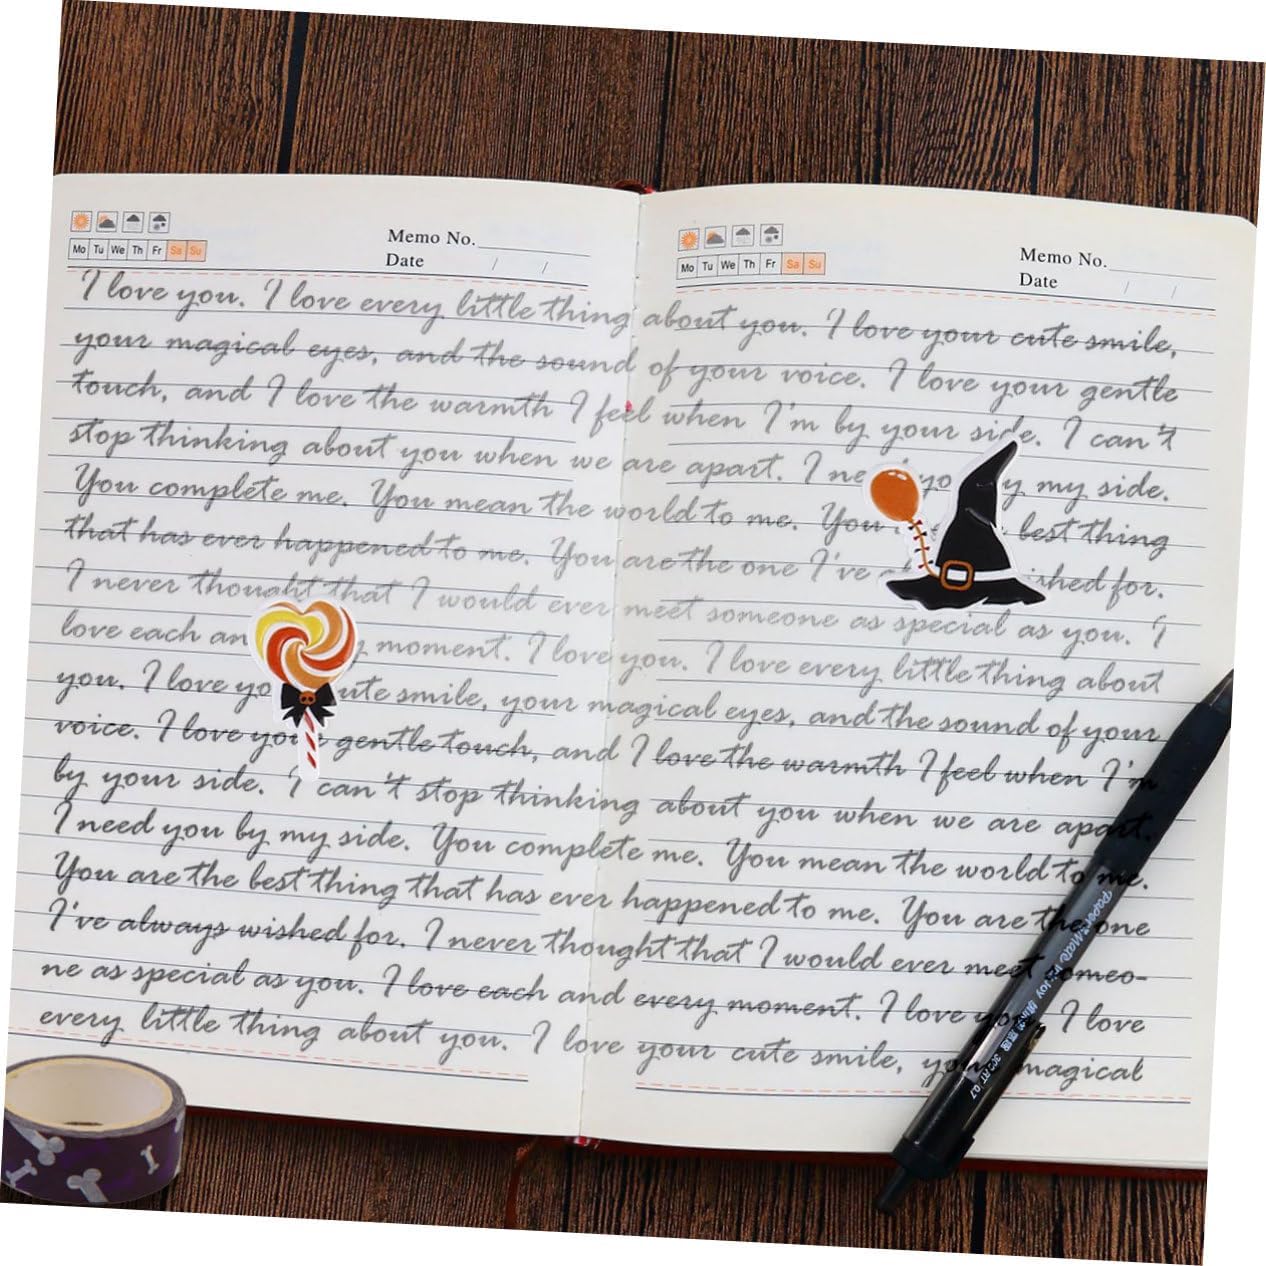 Memo No.
Mo Tu We Th Fr Sa Su
Date
Memo No.
Mo Tu We Th Fr Sa Su
Date
I love you. I love every little thing about you. I love your cute smile,
your magical eyes, and the sound of your voice. I love your gentle
touch, and I love the warmth I feel when I'm by your side. I can't
stop thinking about you when we are apart. I need you by my side.
You complete me. You mean the world to me. You best thing
that has ever happened to me. You are the one I've wished for.
I never thought that I would ever meet someone as special as you. I
love each and moment. I love you. I love every little thing about
you. I love your cute smile, your magical eyes, and the sound of your
voice. I love your gentle touch, and I love the warmth I feel when I'm
by your side. I can't stop thinking about you when we are apart.
I need you by my side. You complete me. You mean the world to me.
You are the best thing that has ever happened to me. You are the one
I've always wished for. I never thought that I would ever meet someo-
ne as special as you. I love each and every moment. I love you. I love
every little thing about you. I love your cute smile, your magical
PAPER:MATE INJOY 300 RT 0.7